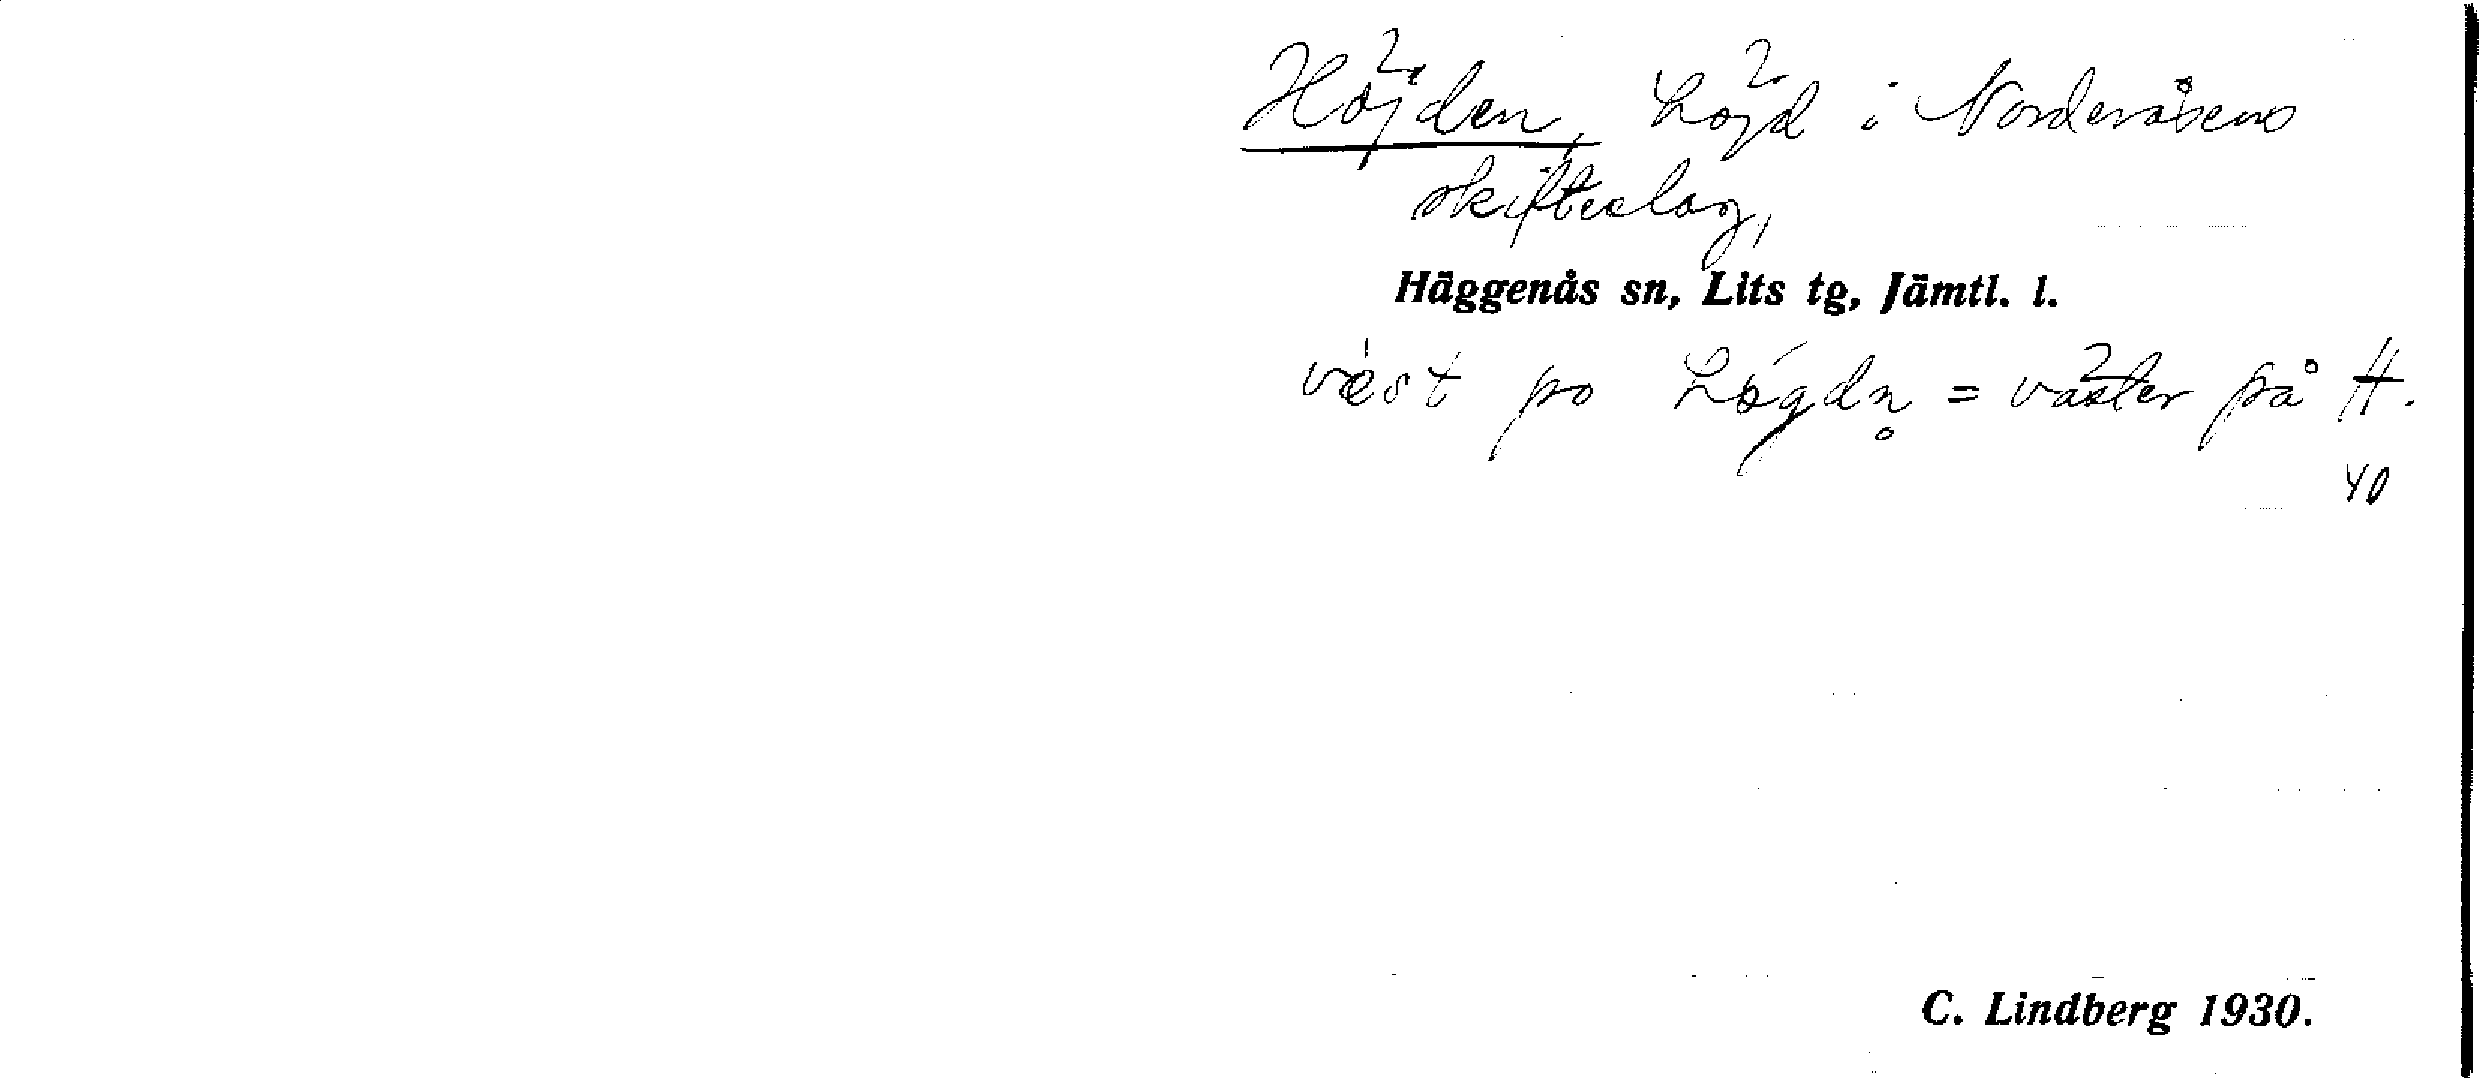 Höjden, höjd i Norderåsens
skifteslag,
Häggenås sn, Lits tg, Jämtl. l.
væ̀st po hǿgdn̥ = väster på H.
40
C. Lindberg 1930.